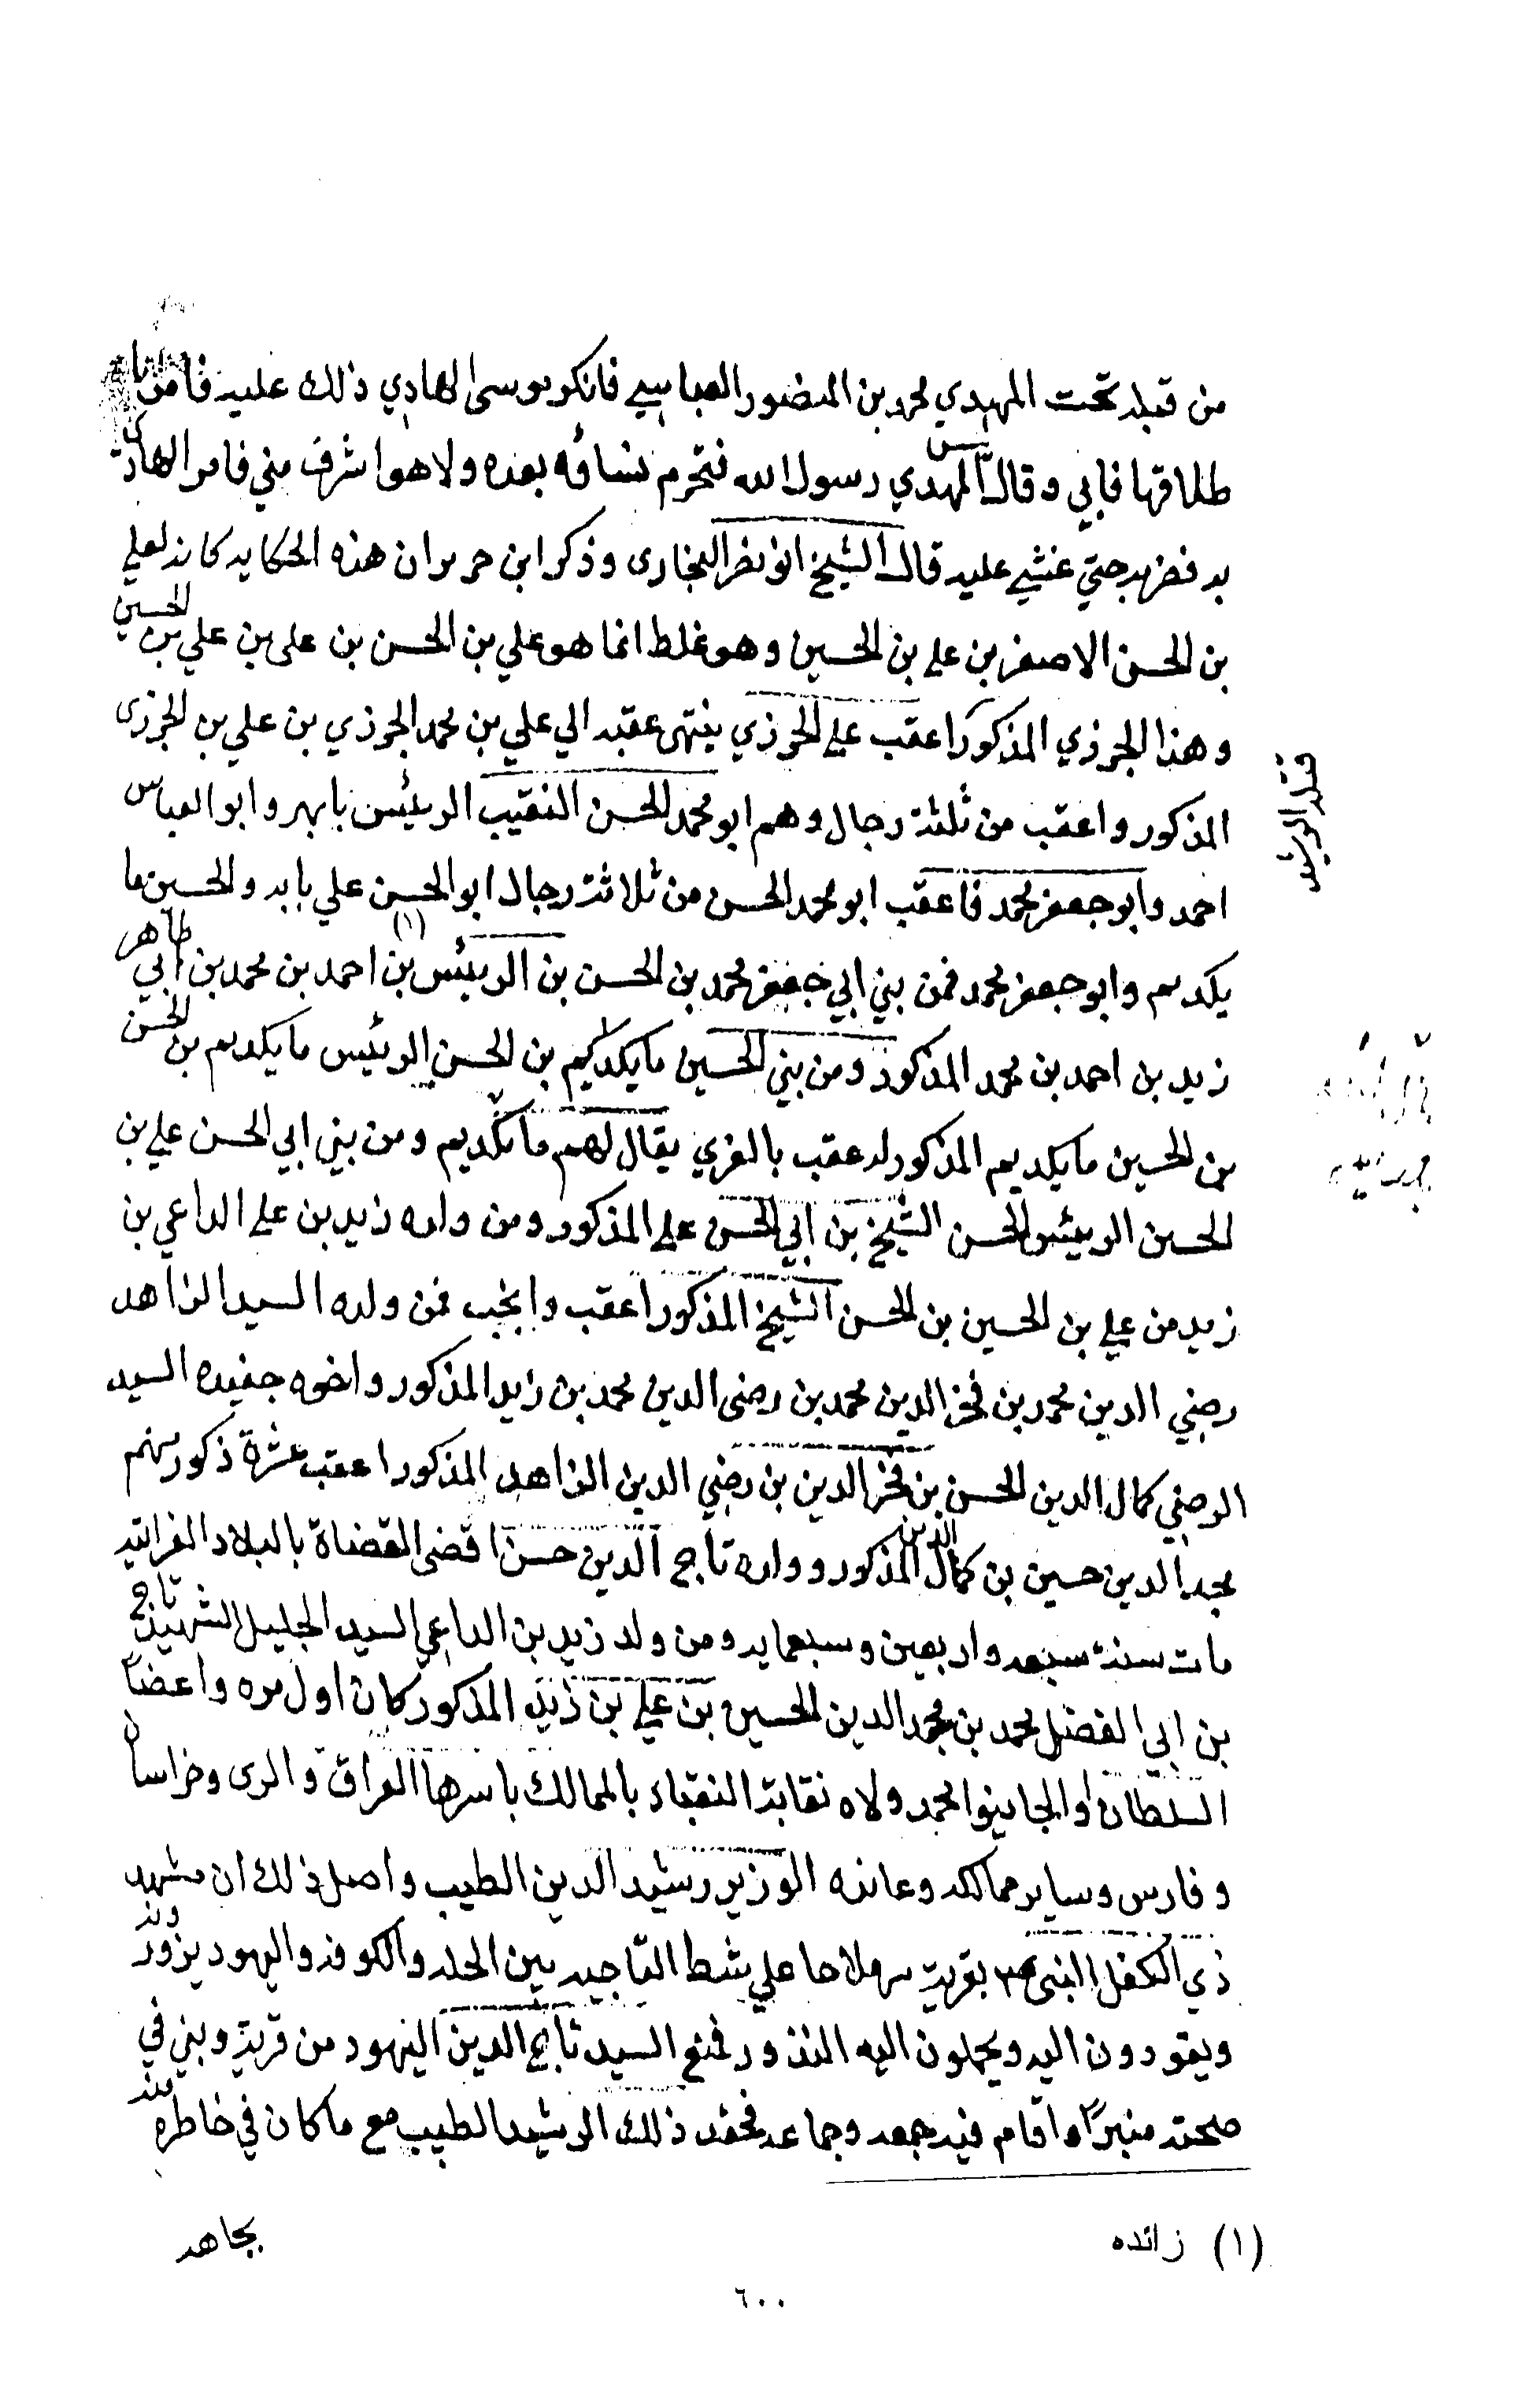 من قبله تحت المهدي محمد بن المنصور العباسي فانكر موسى الهادي ذلك عليه فامره
طلاقها فابي وقال ليس المهدي رسول الله فتحرم نساؤه بعده ولا هو اشرف مني فامر الهادي
به فضرب حتي غشي عليه قال الشيخ ابو نصر البخارى وذكر ابن حرير ان هذه الحكايه كانت لعلي
بن الحسن الاصغر بن علي بن الحسين وهو غلط انما هو علي بن الحسن بن على بن علي بن الحسين
وهذا الجزري المذكور اعقب علي الحرزي ينتهى عقبه الي علي بن محمد الجوزي بن علي بن الجزرى
المذكور واعقب من ثلثة رجال وهم ابو محمد الحسن النقيب الرئيس بابهر وابو العباس
احمد وابو جعفر محمد فاعقب ابو محمد الحسن من ثلاثة رجال ابو الحسن علي بابه والحسين ما
يكديم وابو جعفر محمد فمن بني ابي جعفر محمد بن الحسن بن الرئيس بن (١) احمد بن محمد بن ابي طاهر
زيد بن احمد بن محمد المذكور ومن بني الحسين مايكديم بن الحسن الرئيس مايكديم بن الحسن
بن الحسين مايكديم المذكور له عقب بالغري يقال لهم مانكديم ومن بني ابي الحسن علي بن
الحسن الرئيس الحسن الشيخ بن ابي الحسن علي المذكور ومن ولده زيد بن علي الداعي بن
زيد من علي بن الحسين بن الحسن الشيخ المذكور اعقب وانجب فمن ولده السيد الزاهد
رضي الدين محمد بن فخر الدين محمد بن رضى الدين محمد بن زيد المذكور واخوه حفيده السيد
الرضي كمال الدين الحسن بن فخر الدين بن رضي الدين الزاهد المذكور اعقب عشرة ذكور منهم
مجد الدين حسين بن كمال الدين المذكور وولده تاج الدين حسن اقضى القضاة بالبلاد الفراتيه
مات سنة سبعه واربعين وسبعمايه ومن ولد زيد بن الداعي السيد الجليل الشهيد تاج
بن ابي الفضل محمد بن مجمد الدين الحسين بن علي بن زيد المذكور كان اول مره واعضا
السلطان اوالجايتوا محمد ولاه نقابة النقباء بالممالك باسرها العراق والرى وخراسان
وفارس وساير ممالكه وعانده الوزير رشيد الدين الطبيب واصل ذلك ان مشهد
ذي الكفل النبى بقرية سرملاحا علي شط التاجيه بين الحله والكوفه واليهود يزورونه
ويقودون اليه ويحملون اليه النذور فمنع السيد تاج الدين اليهود من قريه وبني في
صحنه منبراً واقام فيه جمعه وجماعه فحقد ذلك الرشيد الطبيب مع ما كان في خاطره منه
قتله الرشيد
(١) زائده
بجاهه
٦٠٠